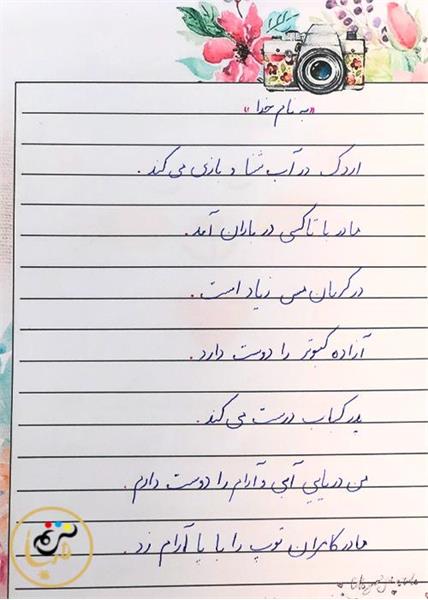 «به نام خدا»
اردک در آب شنا و بازی می کند.
مادر با تاکسی در باران آمد.
در کرمان مس زیاد است.
آزاده کبوتر را دوست دارد.
پدر کباب درست می کند.
من دریایی آبی و آرام را دوست دارم.
مادر کامران توپ را با پا آرام زد.